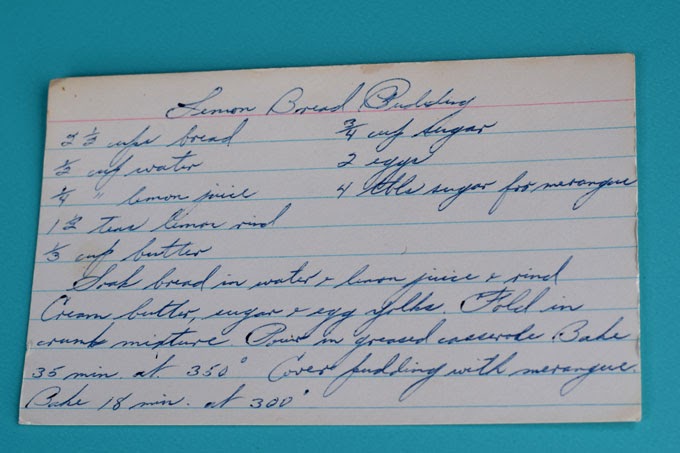 Lemon Bread Pudding
2 ½ cups bread ¾ cup sugar
½ cup water 2 eggs
¼ " lemon juice 4 tbls sugar for merangue
1 ½ teas lemon rind
⅓ cup butter
Soak bread in water & lemon juice & rind
Cream butter, sugar & egg yolks. Fold in
crumb mixture Pour in greased casserole Bake
35 min. at. 350° Cover pudding with merangue.
Bake 18 min. at 300°